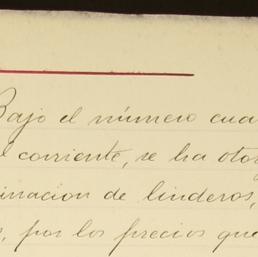 Bajo el número cua
el corriente, se ha otor
inacion de linderos,
por los precios que